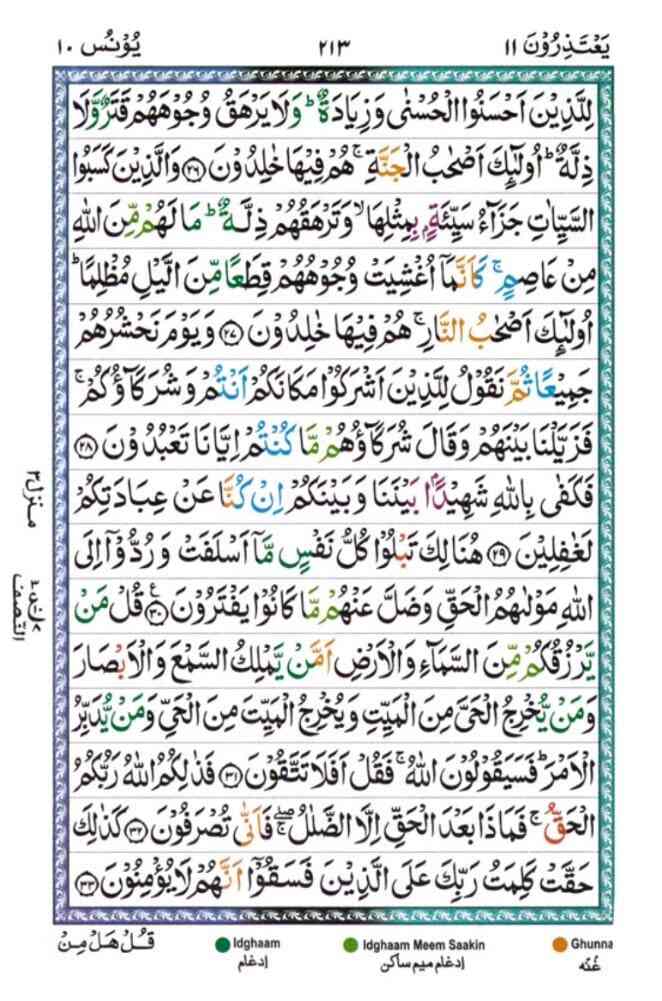 يَعْتَذِرُوْنَ ١١ ٢١٣ يُوْنُس ١٠
لِلَّذِيْنَ اَحْسَنُوا الْحُسْنٰى وَزِيَادَةٌ ؕ وَلَا يَرْهَقُ وُجُوْهَهُمْ قَتَرٌ وَّلَا
ذِلَّةٌ ؕ اُولٰٓئِكَ اَصْحٰبُ الْجَنَّةِ ۚ هُمْ فِيْهَا خٰلِدُوْنَ ﴿٢٦﴾ وَالَّذِيْنَ كَسَبُوا
السَّيِّاٰتِ جَزَآءُ سَيِّئَةٍۭ بِمِثْلِهَا ۙ وَتَرْهَقُهُمْ ذِلَّةٌ ؕ مَا لَهُمْ مِّنَ اللّٰهِ
مِنْ عَاصِمٍ ۚ كَاَنَّمَاۤ اُغْشِيَتْ وُجُوْهُهُمْ قِطَعًا مِّنَ الَّيْلِ مُظْلِمًا ؕ
اُولٰٓئِكَ اَصْحٰبُ النَّارِ ۚ هُمْ فِيْهَا خٰلِدُوْنَ ﴿٢٧﴾ وَيَوْمَ نَحْشُرُهُمْ
جَمِيْعًا ثُمَّ نَقُوْلُ لِلَّذِيْنَ اَشْرَكُوْا مَكَانَكُمْ اَنْتُمْ وَشُرَكَآؤُكُمْ ۚ
فَزَيَّلْنَا بَيْنَهُمْ وَقَالَ شُرَكَآؤُهُمْ مَّا كُنْتُمْ اِيَّانَا تَعْبُدُوْنَ ﴿٢٨﴾
فَكَفٰى بِاللّٰهِ شَهِيْدًۢا بَيْنَنَا وَبَيْنَكُمْ اِنْ كُنَّا عَنْ عِبَادَتِكُمْ
لَغٰفِلِيْنَ ﴿٢٩﴾ هُنَالِكَ تَبْلُوْا كُلُّ نَفْسٍ مَّاۤ اَسْلَفَتْ وَرُدُّوْۤا اِلَى
اللّٰهِ مَوْلٰىهُمُ الْحَقِّ وَضَلَّ عَنْهُمْ مَّا كَانُوْا يَفْتَرُوْنَ ﴿٣٠﴾ ع قُلْ مَنْ
يَّرْزُقُكُمْ مِّنَ السَّمَآءِ وَالْاَرْضِ اَمَّنْ يَّمْلِكُ السَّمْعَ وَالْاَبْصَارَ
وَمَنْ يُّخْرِجُ الْحَيَّ مِنَ الْمَيِّتِ وَيُخْرِجُ الْمَيِّتَ مِنَ الْحَيِّ وَمَنْ يُّدَبِّرُ
الْاَمْرَ ؕ فَسَيَقُوْلُوْنَ اللّٰهُ ۚ فَقُلْ اَفَلَا تَتَّقُوْنَ ﴿٣١﴾ فَذٰلِكُمُ اللّٰهُ رَبُّكُمُ
الْحَقُّ ۚ فَمَاذَا بَعْدَ الْحَقِّ اِلَّا الضَّلٰلُ ۖۚ فَاَنّٰى تُصْرَفُوْنَ ﴿٣٢﴾ كَذٰلِكَ
حَقَّتْ كَلِمَتُ رَبِّكَ عَلَى الَّذِيْنَ فَسَقُوْۤا اَنَّهُمْ لَا يُؤْمِنُوْنَ ﴿٣٣﴾
منزل ٣
النصف
قُلْ هَلْ مِنْ
Idghaam
إدغام
Idghaam Meem Saakin
إدغام ميم ساكن
Ghunna
غُنّه